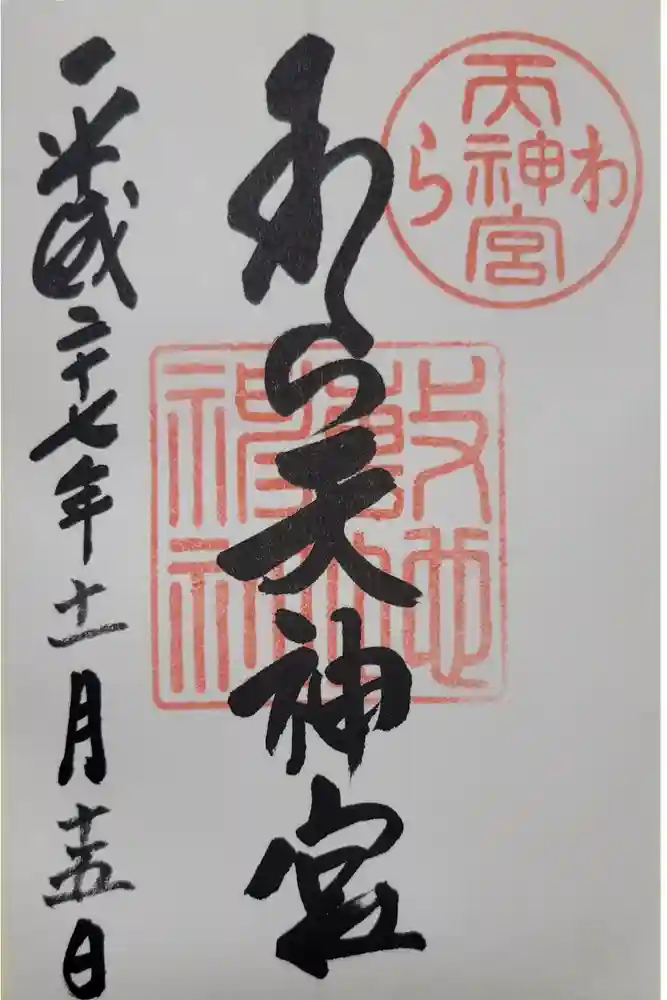 わら
天神宮
敷地
神社
わら天神宮
平成二十七年十一月十五日